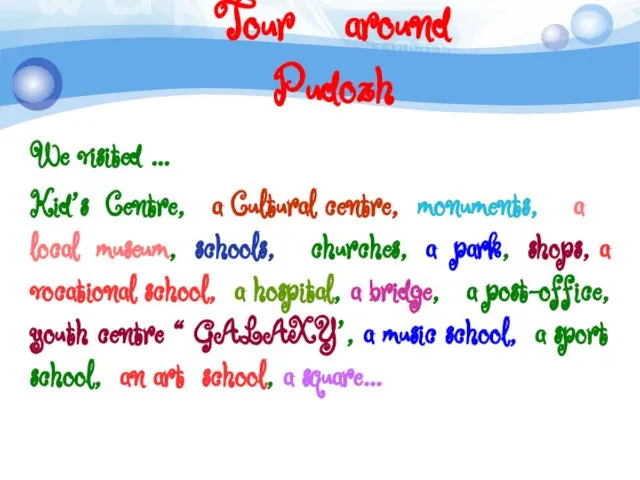 Tour around
Pudozh
We visited ...
Kid's Centre, a Cultural centre, monuments, a
local museum, schools, churches, a park, shops, a
vocational school, a hospital, a bridge, a post-office,
youth centre “ GALAXY’, a music school, a sport
school, an art school, a square...